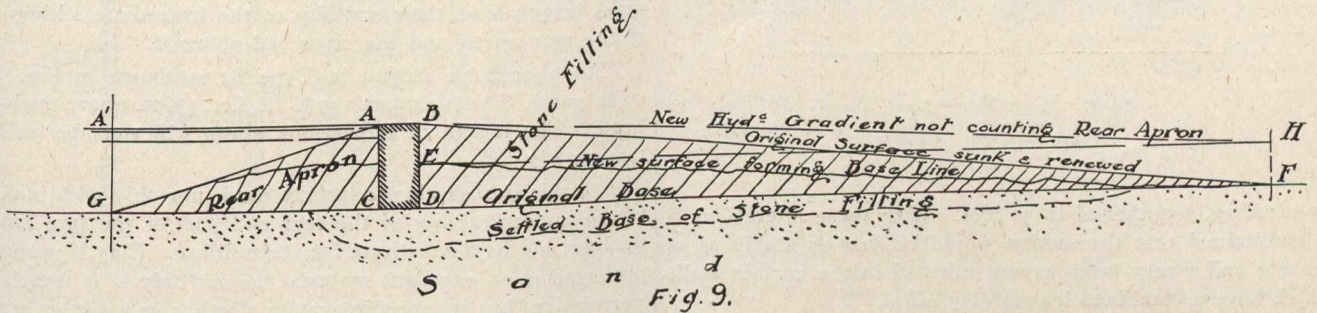 Stone Filling
A' A B New Hyd.c Gradient not counting Rear Apron H
Original Surface sunk & renewed
E New surface forming Base Line F
Rear Apron
G C D Original Base
Settled Base of Stone Filling
Sand
Fig. 9.